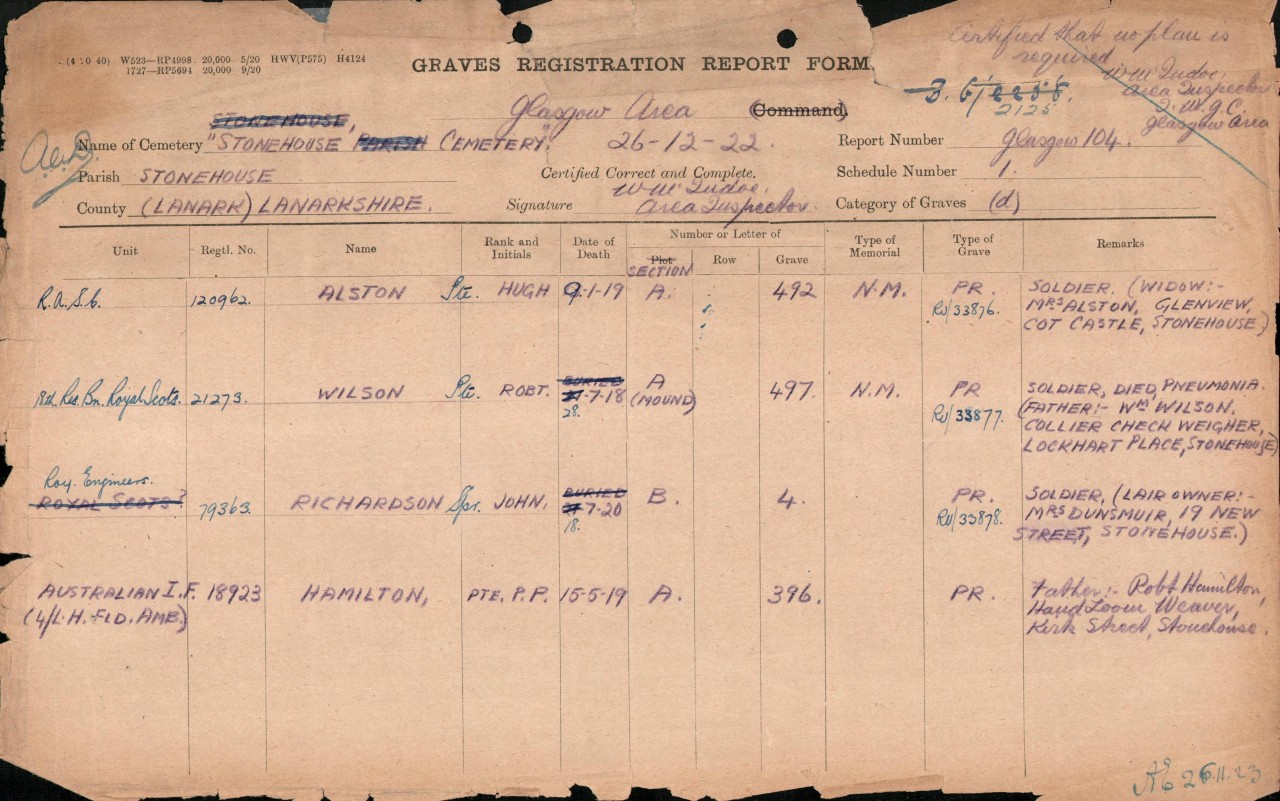 Certified that no plan is
required
(4 10 40) W523—RP4998 20,000 5/20 HWV(P575) H4124
1727—RP5694 20,000 9/20
GRAVES REGISTRATION REPORT FORM
Area Inspector
I.W.G.C.
Glasgow Area
2125
Glasgow Area (Command)
STONEHOUSE,
Name of Cemetery "STONEHOUSE PARISH CEMETERY". 26-12-22. Report Number Glasgow 104.
Parish STONEHOUSE Certified Correct and Complete. Schedule Number 1.
County (LANARK) LANARKSHIRE. Signature Area Inspector. Category of Graves (d)
Unit Regtl. No. Name Rank and Initials Date of Death Number or Letter of Type of Memorial Type of Grave Remarks
Plot Row Grave
SECTION
R.A.S.C. 120962. ALSTON Pte. HUGH 9-1-19 A. 492 N.M. PR. SOLDIER. (WIDOW:-
Rv/33876. MRS ALSTON, GLENVIEW,
COT CASTLE, STONEHOUSE)
BURIED
18th Res. Bn. Royal Scots. 21273. WILSON Pte. ROBT. 27-7-18 A 497. N.M. PR SOLDIER, DIED, PNEUMONIA.
28. (MOUND) Rv/33877. (FATHER:- WM WILSON.
COLLIER CHECK WEIGHER,
LOCKHART PLACE, STONEHOUSE)
Roy. Engineers.
BURIED
ROYAL SCOTS? 79363. RICHARDSON Spr. JOHN. 7-20 B. 4. PR. SOLDIER, (LAIR OWNER:-
18. Rv/33878. MRS DUNSMUIR, 19 NEW
STREET, STONEHOUSE.)
AUSTRALIAN I.F. 18923 HAMILTON, PTE. P.P. 15-5-19 A. 396. PR. Father:- Robt Hamilton,
(4/L.H. FLD. AMB.) Hand Loom Weaver,
Kirk Street, Stonehouse.